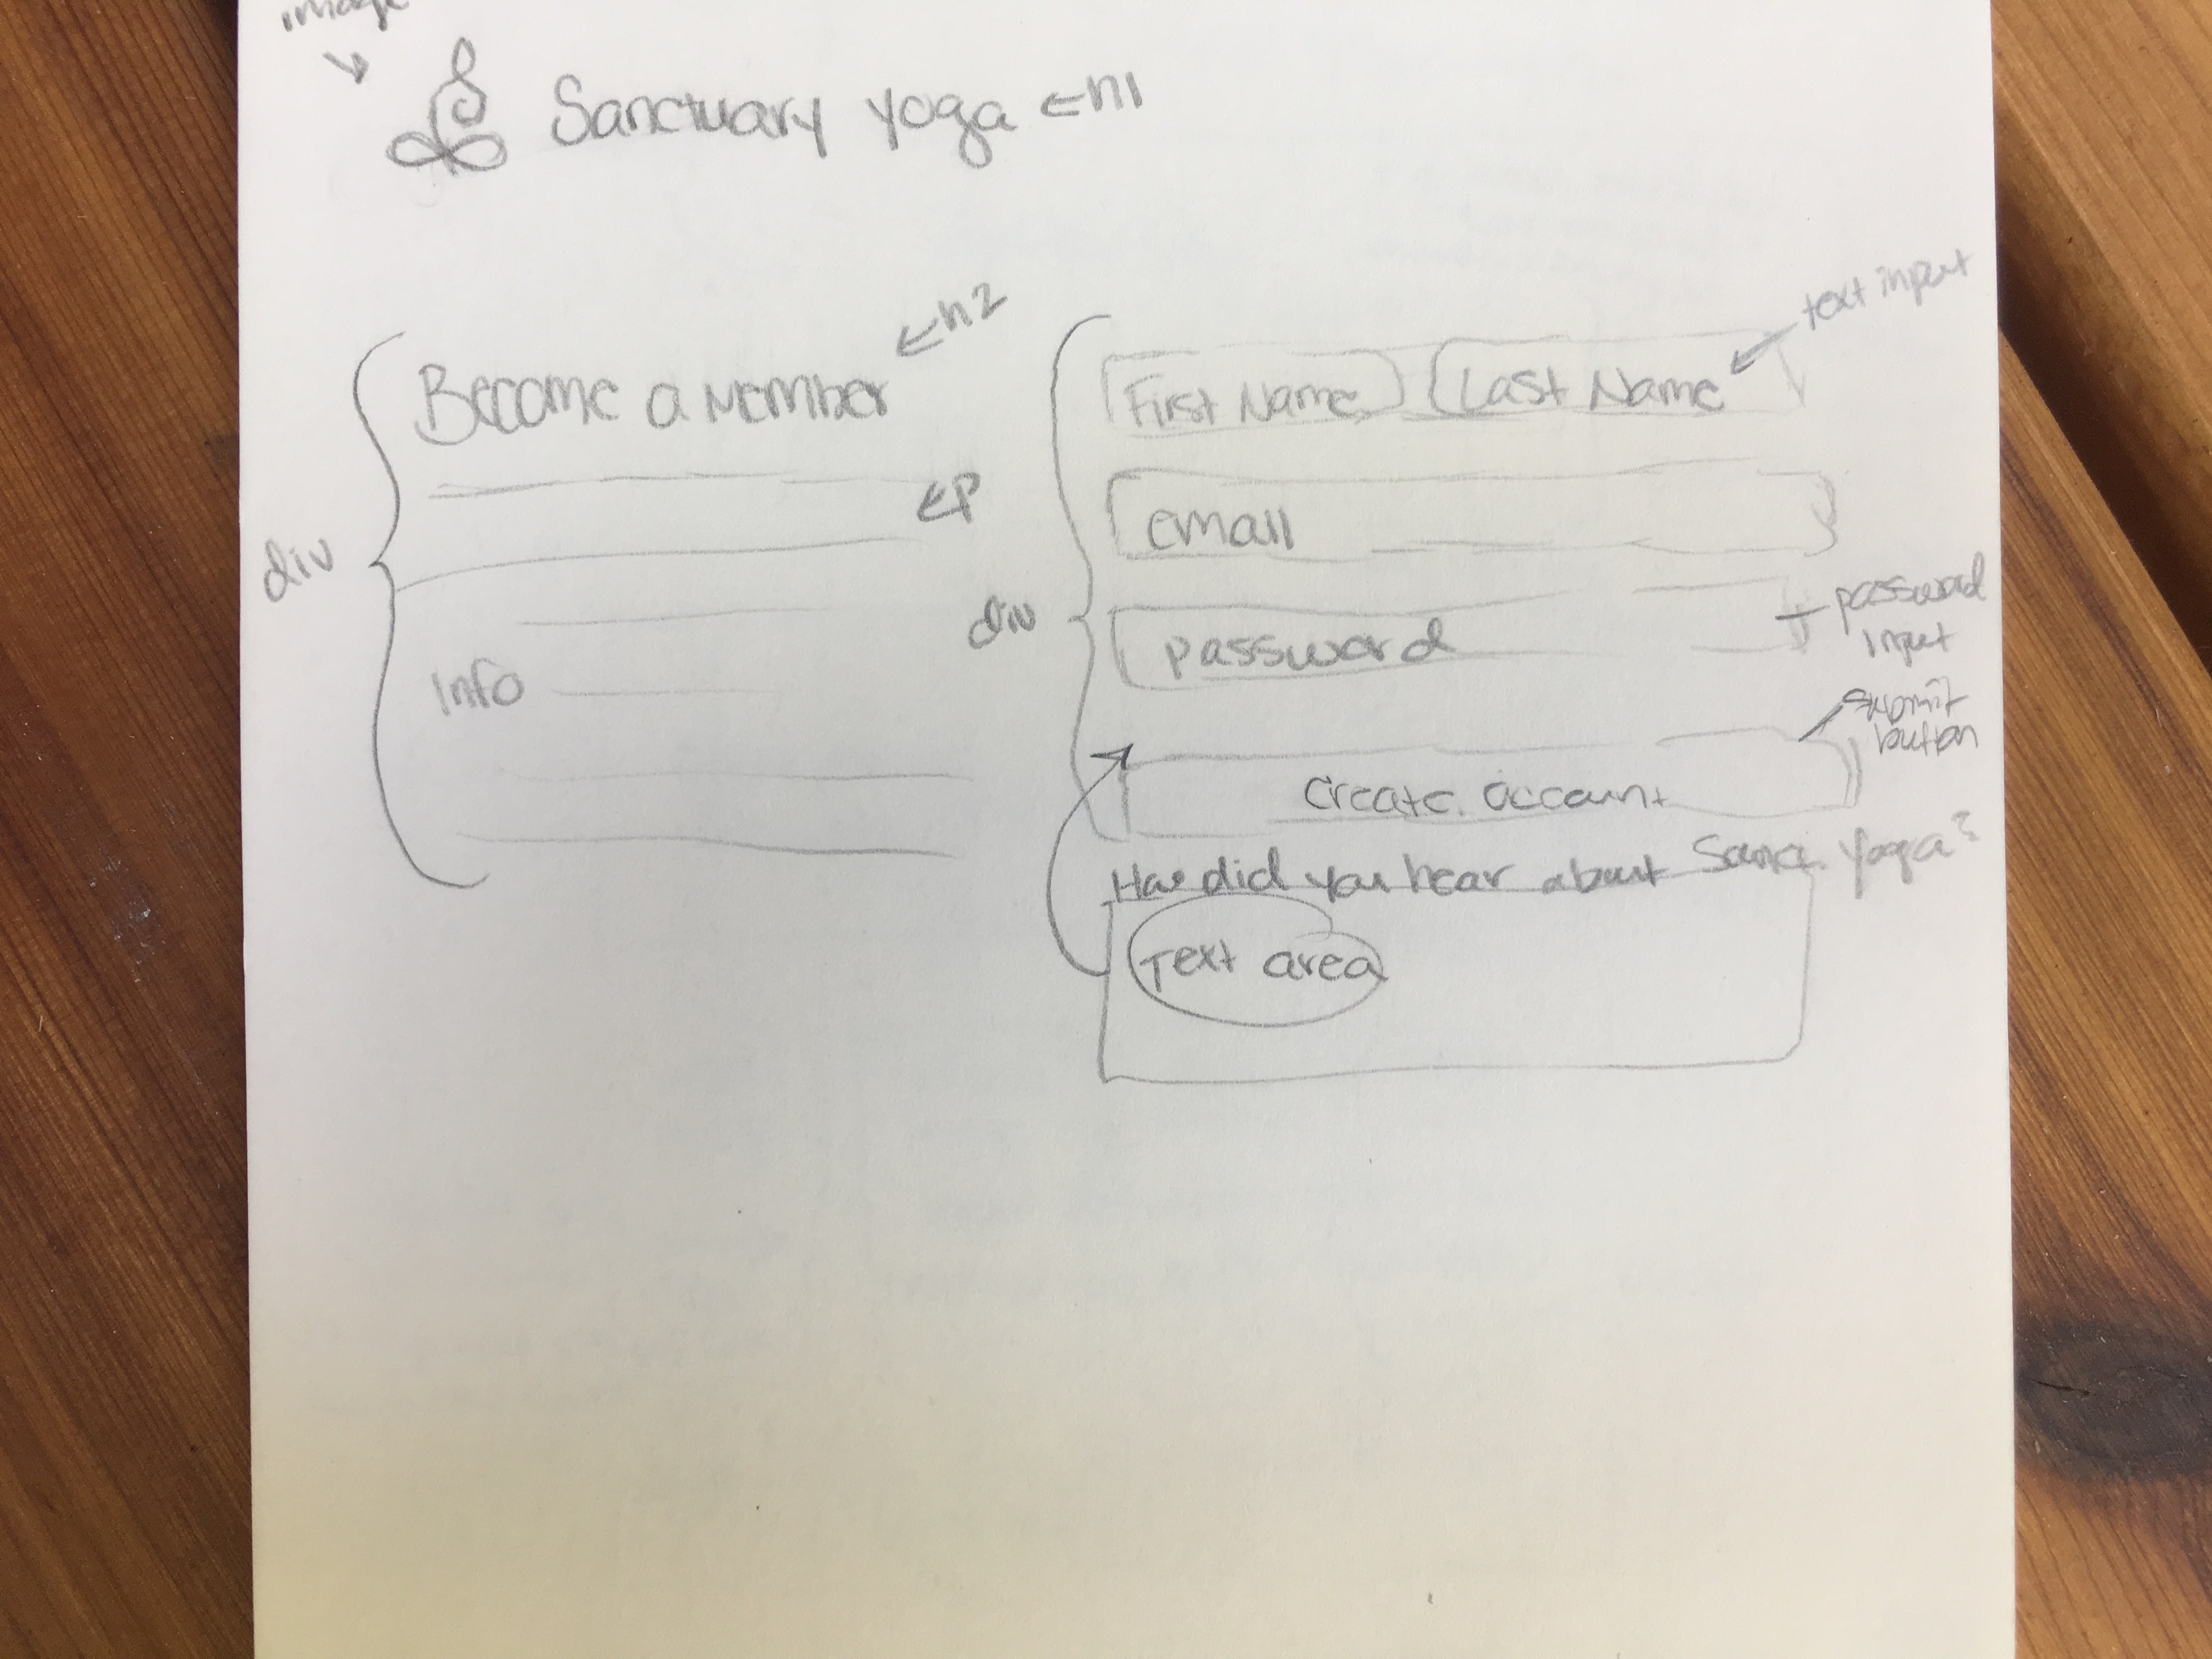 image
Sanctuary Yoga ← h1
Become a Member ← h2
← P
div
Info
div
First Name Last Name
text input
email
password
password input
Create account
submit button
How did you hear about Sanc. Yoga?
Text area